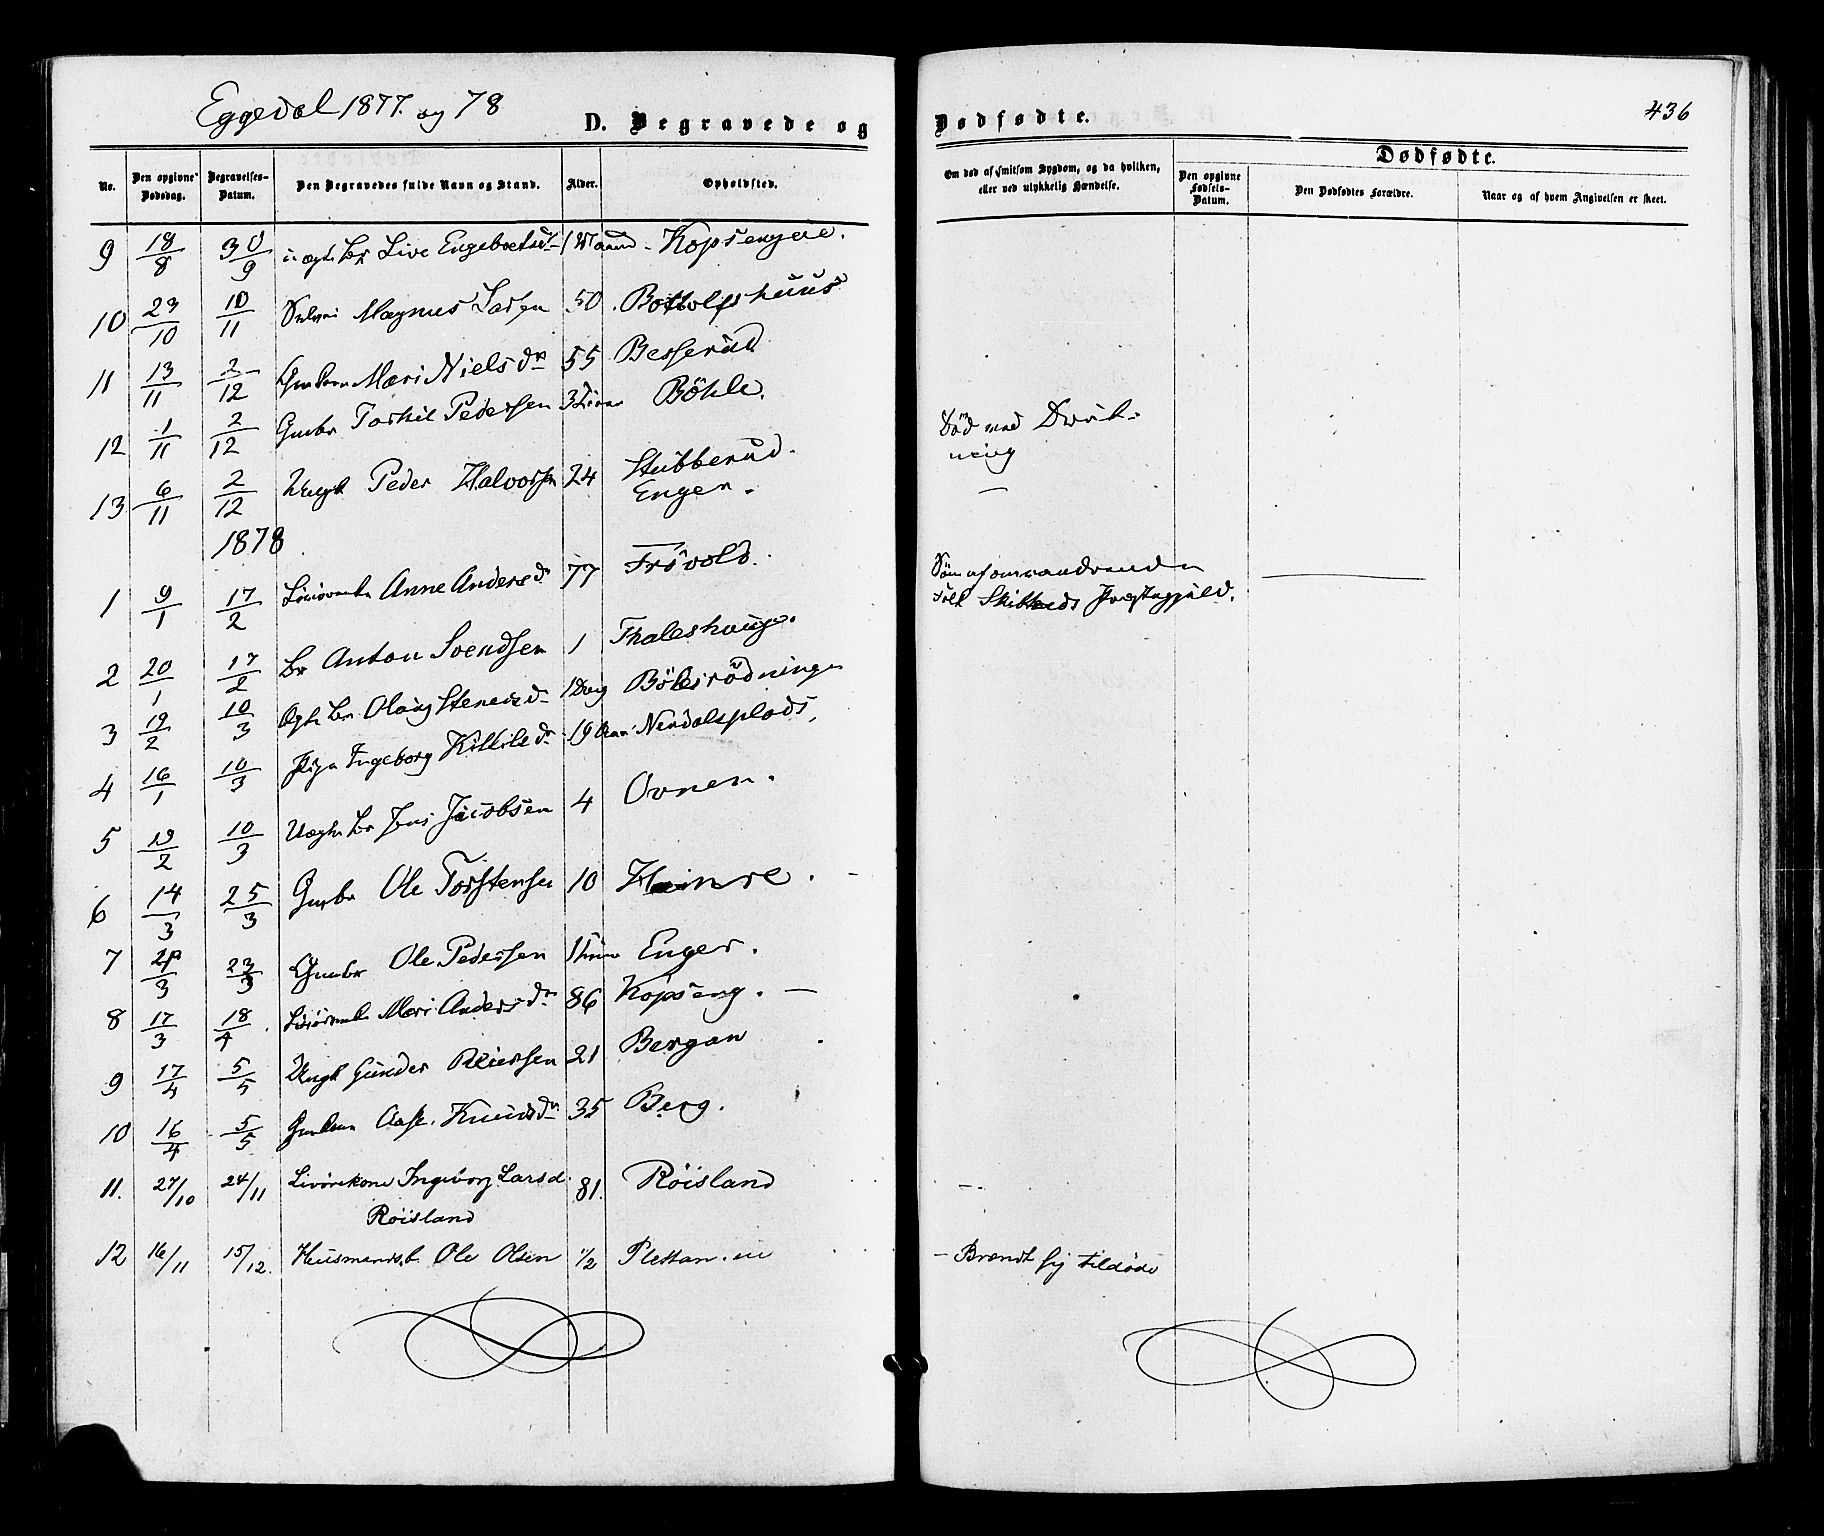 Eggedal 1877. og 78
D. Begravede og
Dødfødte.
436
No.
Den opgivne Dødsdag.
Begravelses-Datum.
Den Begravedes fulde Navn og Stand.
Alder.
Opholdsted.
Om død af smitsom Sygdom, og da hvilken, eller ved ulykkelig Hændelse.
Dødfødte.
Den opgivne Fødsels-Datum.
Den Dødfødtes Forældre.
Naar og af hvem Angivelsen er skeet.
9 18/8 30/9 uægte Br Live Engebretsd 1 Maaned Kopsengeie.
10 23/10 10/11 Magnus Larsen 50 Bottolfshuus
11 13/11 2/12 Mari Nielsdr 55 Besserud
12 1/11 2/12 Gmbr Torkil Pedersen 3 Böhle.
Död ved Drukning
13 6/11 2/12 Ungk Peder Halvorsen 24 Stubberud. Enger.
1878
1 9/1 17/2 Anne Andersdr 77 Frövold.
2 20/1 17/2 Br Anton Svendsen 1 Thaleshaug.
Sön af omvandrende Folk Præstegjæld.
3 19/2 10/3 Ægte Br Olaug Stenersd 1 Dag Bölesrödningen
4 16/1 10/3 Pige Ingeborg Kittilsdr 19 Aar Nerdalsplads,
5 19/2 10/3 Uægte Br Jens Jacobsen 4 Ovnen.
6 14/3 25/3 Gmbr Ole Torstensen 10
7 23/3 Gmbr Ole Pedersen Enger.
8 17/3 18/4 Mari Andersdr 86 Kopseng.
9 17/4 5/5 Ungk Gunder Reiersen 21 Bergan
10 16/4 5/5 Aase Knudsdr 35 Berg.
11. 27/10 24/11 Livörekone Ingeborg Larsd. 81. Röisland
Röisland
12 16/11 15/12. Huusmands.b. Ole Olsen 1/2 Plettan. eie
– Brændt sig tildöde